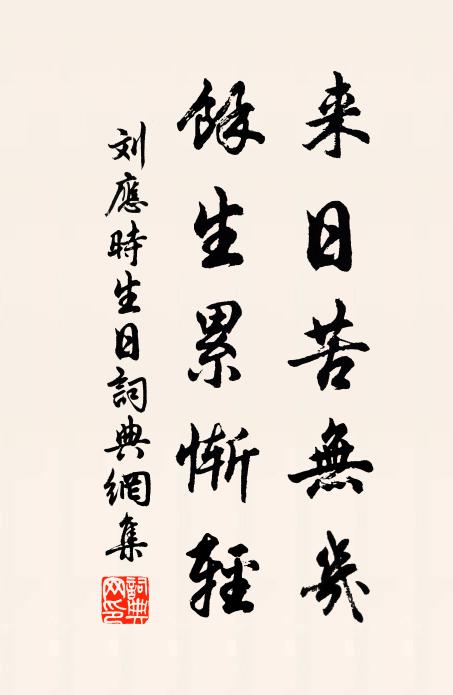 来日苦無幾
餘生累漸輕
刘應時生日詞典網集
詞典网印